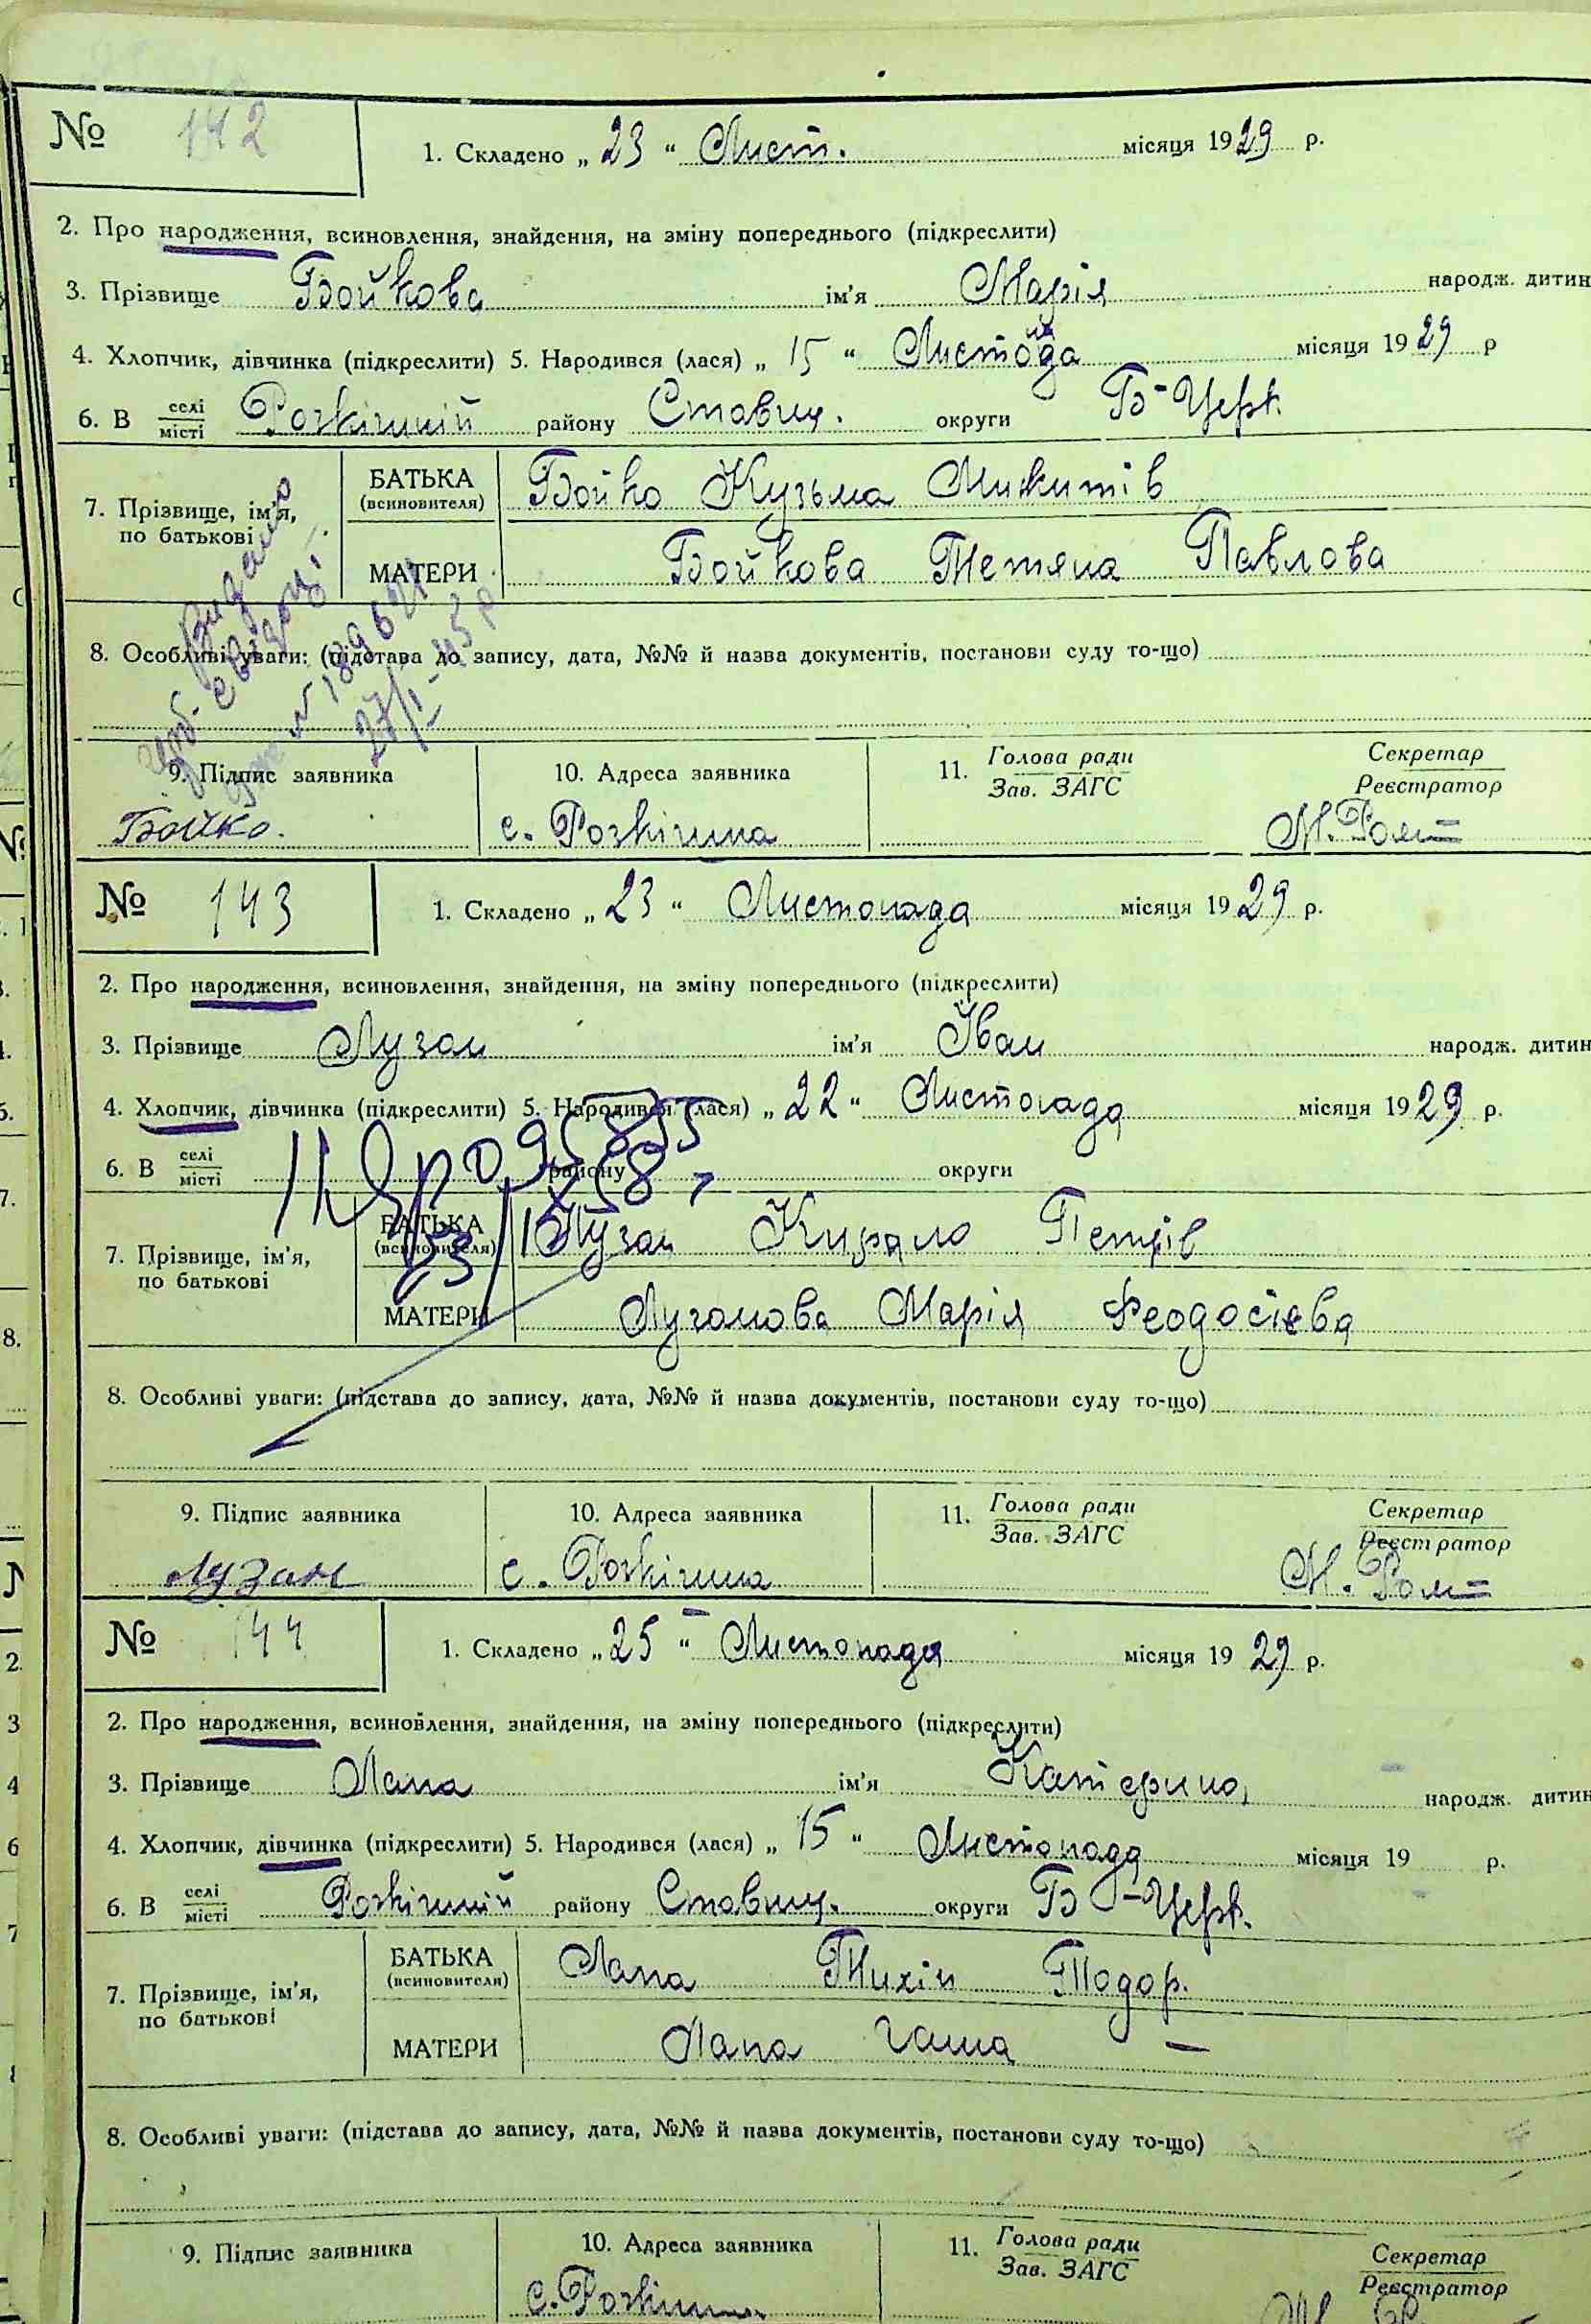 № 142
1. Складено „ 23 “ Лист. місяця 1929 р.
2. Про народження, всиновлення, знайдення, на зміну попереднього (підкреслити)
3. Прізвище Бойкова ім'я Марія народж. дитин
4. Хлопчик, дівчинка (підкреслити) 5. Народився (лася) „ 15 “ місяця 1929 р
6. В селі місті Розкішній району Ставищ. округи Б-Церк.
7. Прізвище, ім'я, по батькові
БАТЬКА (всиновителя) Бойко Кузьма Микитів
МАТЕРИ Бойкова Тетяна Павлова
Видано
свідоц.
27/I-45 р
8. Особливі уваги: (підстава до запису, дата, №№ й назва документів, постанови суду то-що)
9. Підпис заявника 10. Адреса заявника 11. Голова ради Зав. ЗАГС Секретар Реєстратор
Бойко. с. Розкішна
№ 143
1. Складено „ 23 “ Листопада місяця 1929 р.
2. Про народження, всиновлення, знайдення, на зміну попереднього (підкреслити)
3. Прізвище Лузан ім'я Іван народж. дитин
4. Хлопчик, дівчинка (підкреслити) 5. Народився (лася) „ 22 “ Листопада місяця 1929 р.
6. В селі місті району округи
7. Прізвище, ім'я, по батькові
БАТЬКА (всиновителя) Лузан Кирило Петрів
МАТЕРИ Лузанова Марія Феодосієва
8. Особливі уваги: (підстава до запису, дата, №№ й назва документів, постанови суду то-що)
9. Підпис заявника 10. Адреса заявника 11. Голова ради Зав. ЗАГС Секретар Реєстратор
Лузан с. Розкішна
№ 144
1. Складено „ 25 “ Листопада місяця 1929 р.
2. Про народження, всиновлення, знайдення, на зміну попереднього (підкреслити)
3. Прізвище Лапа ім'я Катерина народж. дитин
4. Хлопчик, дівчинка (підкреслити) 5. Народився (лася) „ 15 “ Листопада місяця 19 р.
6. В селі місті Розкішній району Ставищ. округи Б-Церк.
7. Прізвище, ім'я, по батькові
БАТЬКА (всиновителя) Лапа Тихін Тодор.
МАТЕРИ Лапа Ганна —
8. Особливі уваги: (підстава до запису, дата, №№ й назва документів, постанови суду то-що)
9. Підпис заявника 10. Адреса заявника 11. Голова ради Зав. ЗАГС Секретар Реєстратор
с. Розкішна